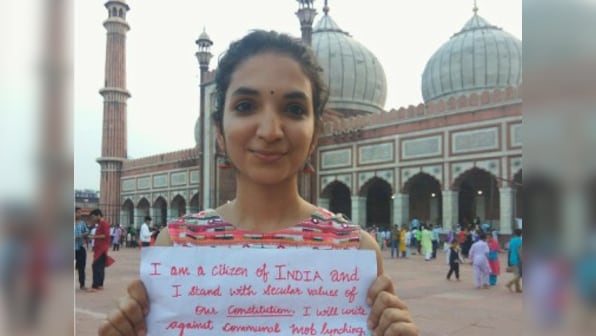 I am a citizen of INDIA and
I stand with secular values of
our Constitution. I will write
against communal mob lynching,